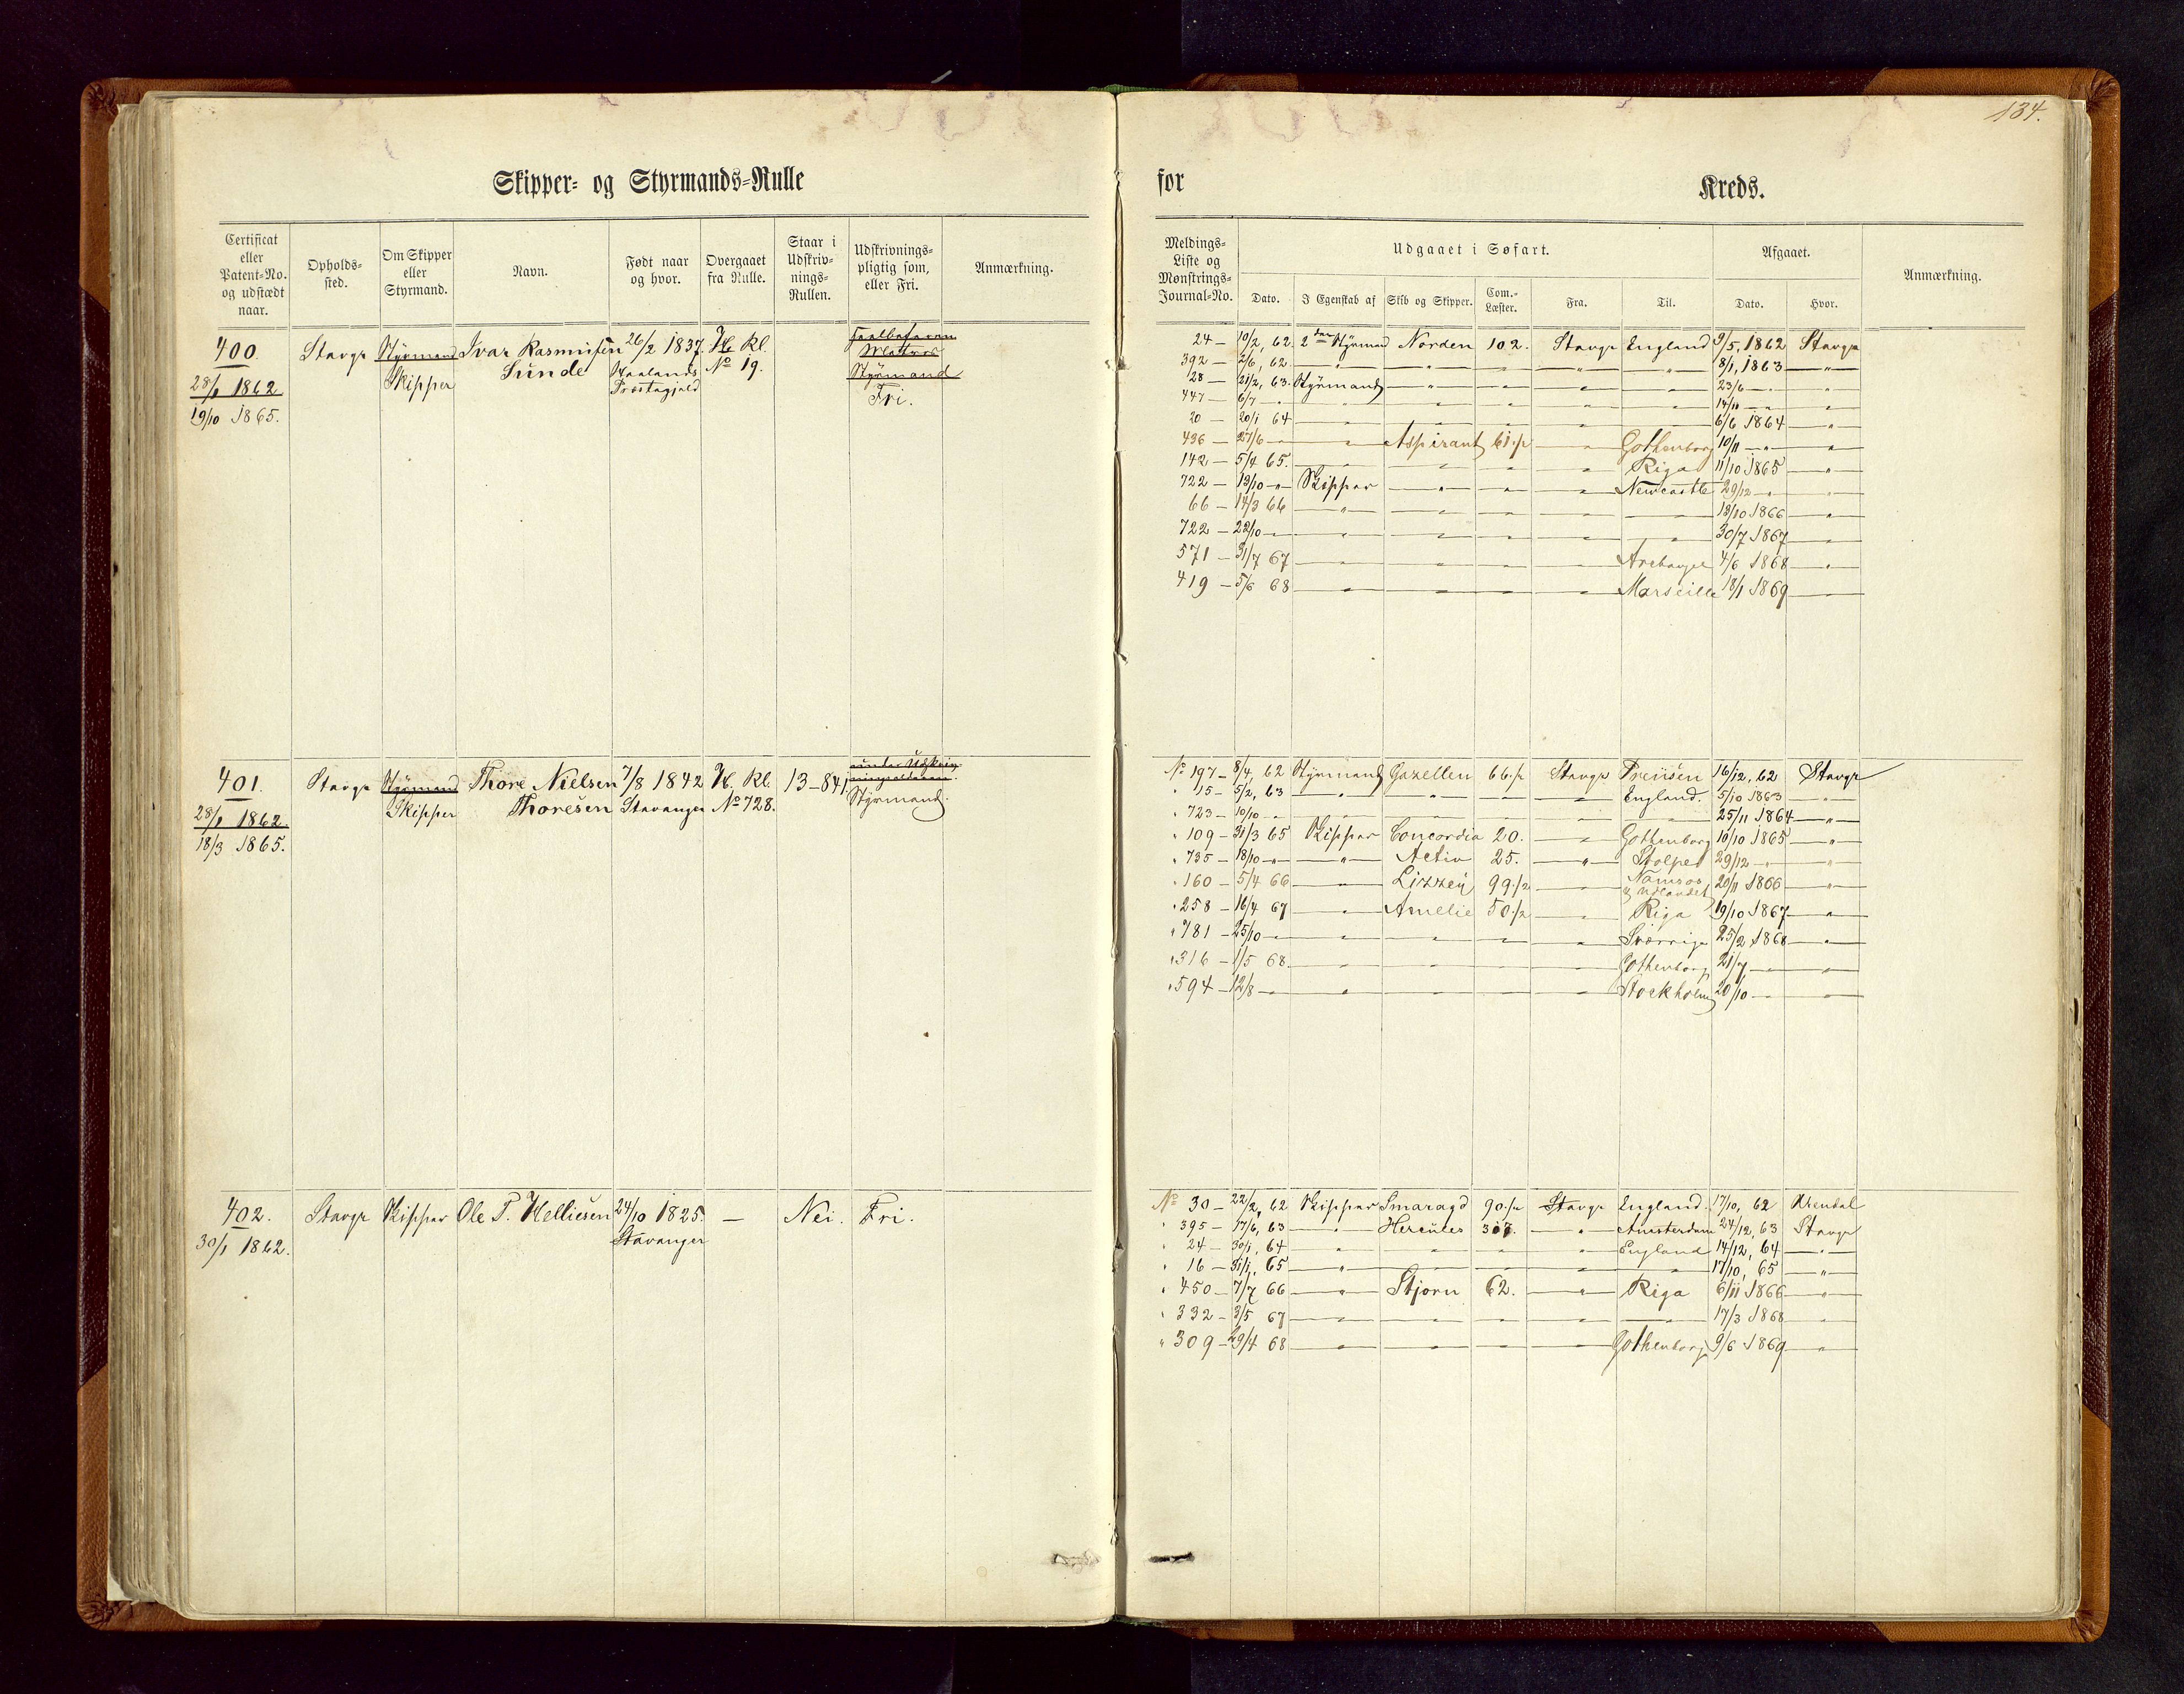 134.
Skipper= og Styrmands=Rulle for Kreds.
Certificat eller Patent=No. og udstædt naar.
Opholds=sted.
Om Skipper eller Styrmand.
Navn.
Født naar og hvor.
Overgaaet fra Rulle.
Staar i Udskriv=nings=Rullen.
Udskrivnings=pligtig som, eller Fri.
Anmærkning.
Meldings=Liste og Mønstrings=Journal=No.
Udgaaet i Søfart.
Dato.
I Egenskab af
Skib og Skipper.
Com.=Læster.
Fra.
Til.
Afgaaet.
Dato.
Hvor.
Anmærkning.
400. Stavgr Styrmand Ivar Rasmussen 26/2 1837. H. Kl.
Skipper Sunde Haalands No 19. Matros
28/1 1862. Præstegjeld Styrmand
19/10 1865. Fri.
24 — 10/2, 62. 2den Styrmand Norden 102. Stavgr England 9/5, 1862 Stavgr
392 — 2/6, 62. — " — " — " — " — " 8/1, 1863 — "
128 — 21/2, 63. Styrmand — " — " — " — " 23/6 — " — "
447 — 6/7 — " — " — " — " — " — " 14/11 — " — "
20 — 20/1 64 — " — " — " — " — " 6/6 1864 — "
436 — 27/6 — " — " Aspirant 61 1/2 — " Gothenborg 10/11 — " — "
142 — 5/4 65. — " — " — " — " Riga 11/10 1865 — "
722 — 13/10 — " Skipper — " — " — " Newcastle 29/12 — " — "
66 — 14/3 66 — " — " — " — " — " 13/10 1866 — "
722 — 22/10 — " — " — " — " — " — " 30/7 1867 — "
571 — 31/7 67 — " — " — " — " Archangel 4/6 1868 — "
419 — 5/6 68 — " — " — " — " Marseille 18/1 1869 — "
401. Stavgr Styrmand Thore Nielsen 7/8 1842 H. Kl. 13—841. under Udskriv=
Skipper Thoresen Stavanger No 728. ningsalderen.
28/1 1862. Styrmand.
18/3 1865.
No 197 — 8/4, 62 Styrmand Gazellen 66 1/2 Stavgr Preüsen 16/12, 62 Stavgr
" 15 — 5/2, 63 — " — " — " — " England. 5/10 1863 — "
" 723 — 10/10 — " — " — " — " — " — " 25/11 1864 — "
" 109 — 31/3 65 Skipper Concordia 20. — " Gothenborg 10/10 1865 — "
" 735 — 18/10 — " — " Activ 25. — " Stolpe 29/12 — " — "
" 160 — 5/4 66 — " Lizzey 99 1/2 — " Namsos & Udlandet 20/11 1866 — "
" 258 — 16/4 67 — " Amelie 50 1/2 — " Riga 19/10 1867 — "
" 781 — 25/10 — " — " — " — " — " Sverrige 25/2 1868 — "
" 316 — 1/5 68. — " — " — " — " Gothenborg 21/7 — " — "
" 594 — 12/8 — " — " — " — " — " Stockholm 20/10 — " — "
402. Stavgr Skipper Ole T. Helliesen 24/10 1825. — Nei. Fri.
30/1 1862. Stavanger
No 30 — 22/2, 62 Skipper Smaragd 90 1/2 Stavgr England. 17/10, 62 Arendal
" 395 — 17/6, 63 — " Hercules — " Amsterdam 24/12, 63 Stavgr
" 24 — 30/1, 64 — " — " — " — " England 14/12, 64 — "
" 16 — 31/1, 65 — " — " — " — " — " 17/10, 65 — "
" 450 — 7/7 66 — " Stjorn 62. — " Riga 6/11 1866 — "
" 332 — 3/5 67 — " — " — " — " — " 17/3 1868 — "
" 309 — 29/4 68 — " — " — " — " Gothenborg 9/6 1869 — "